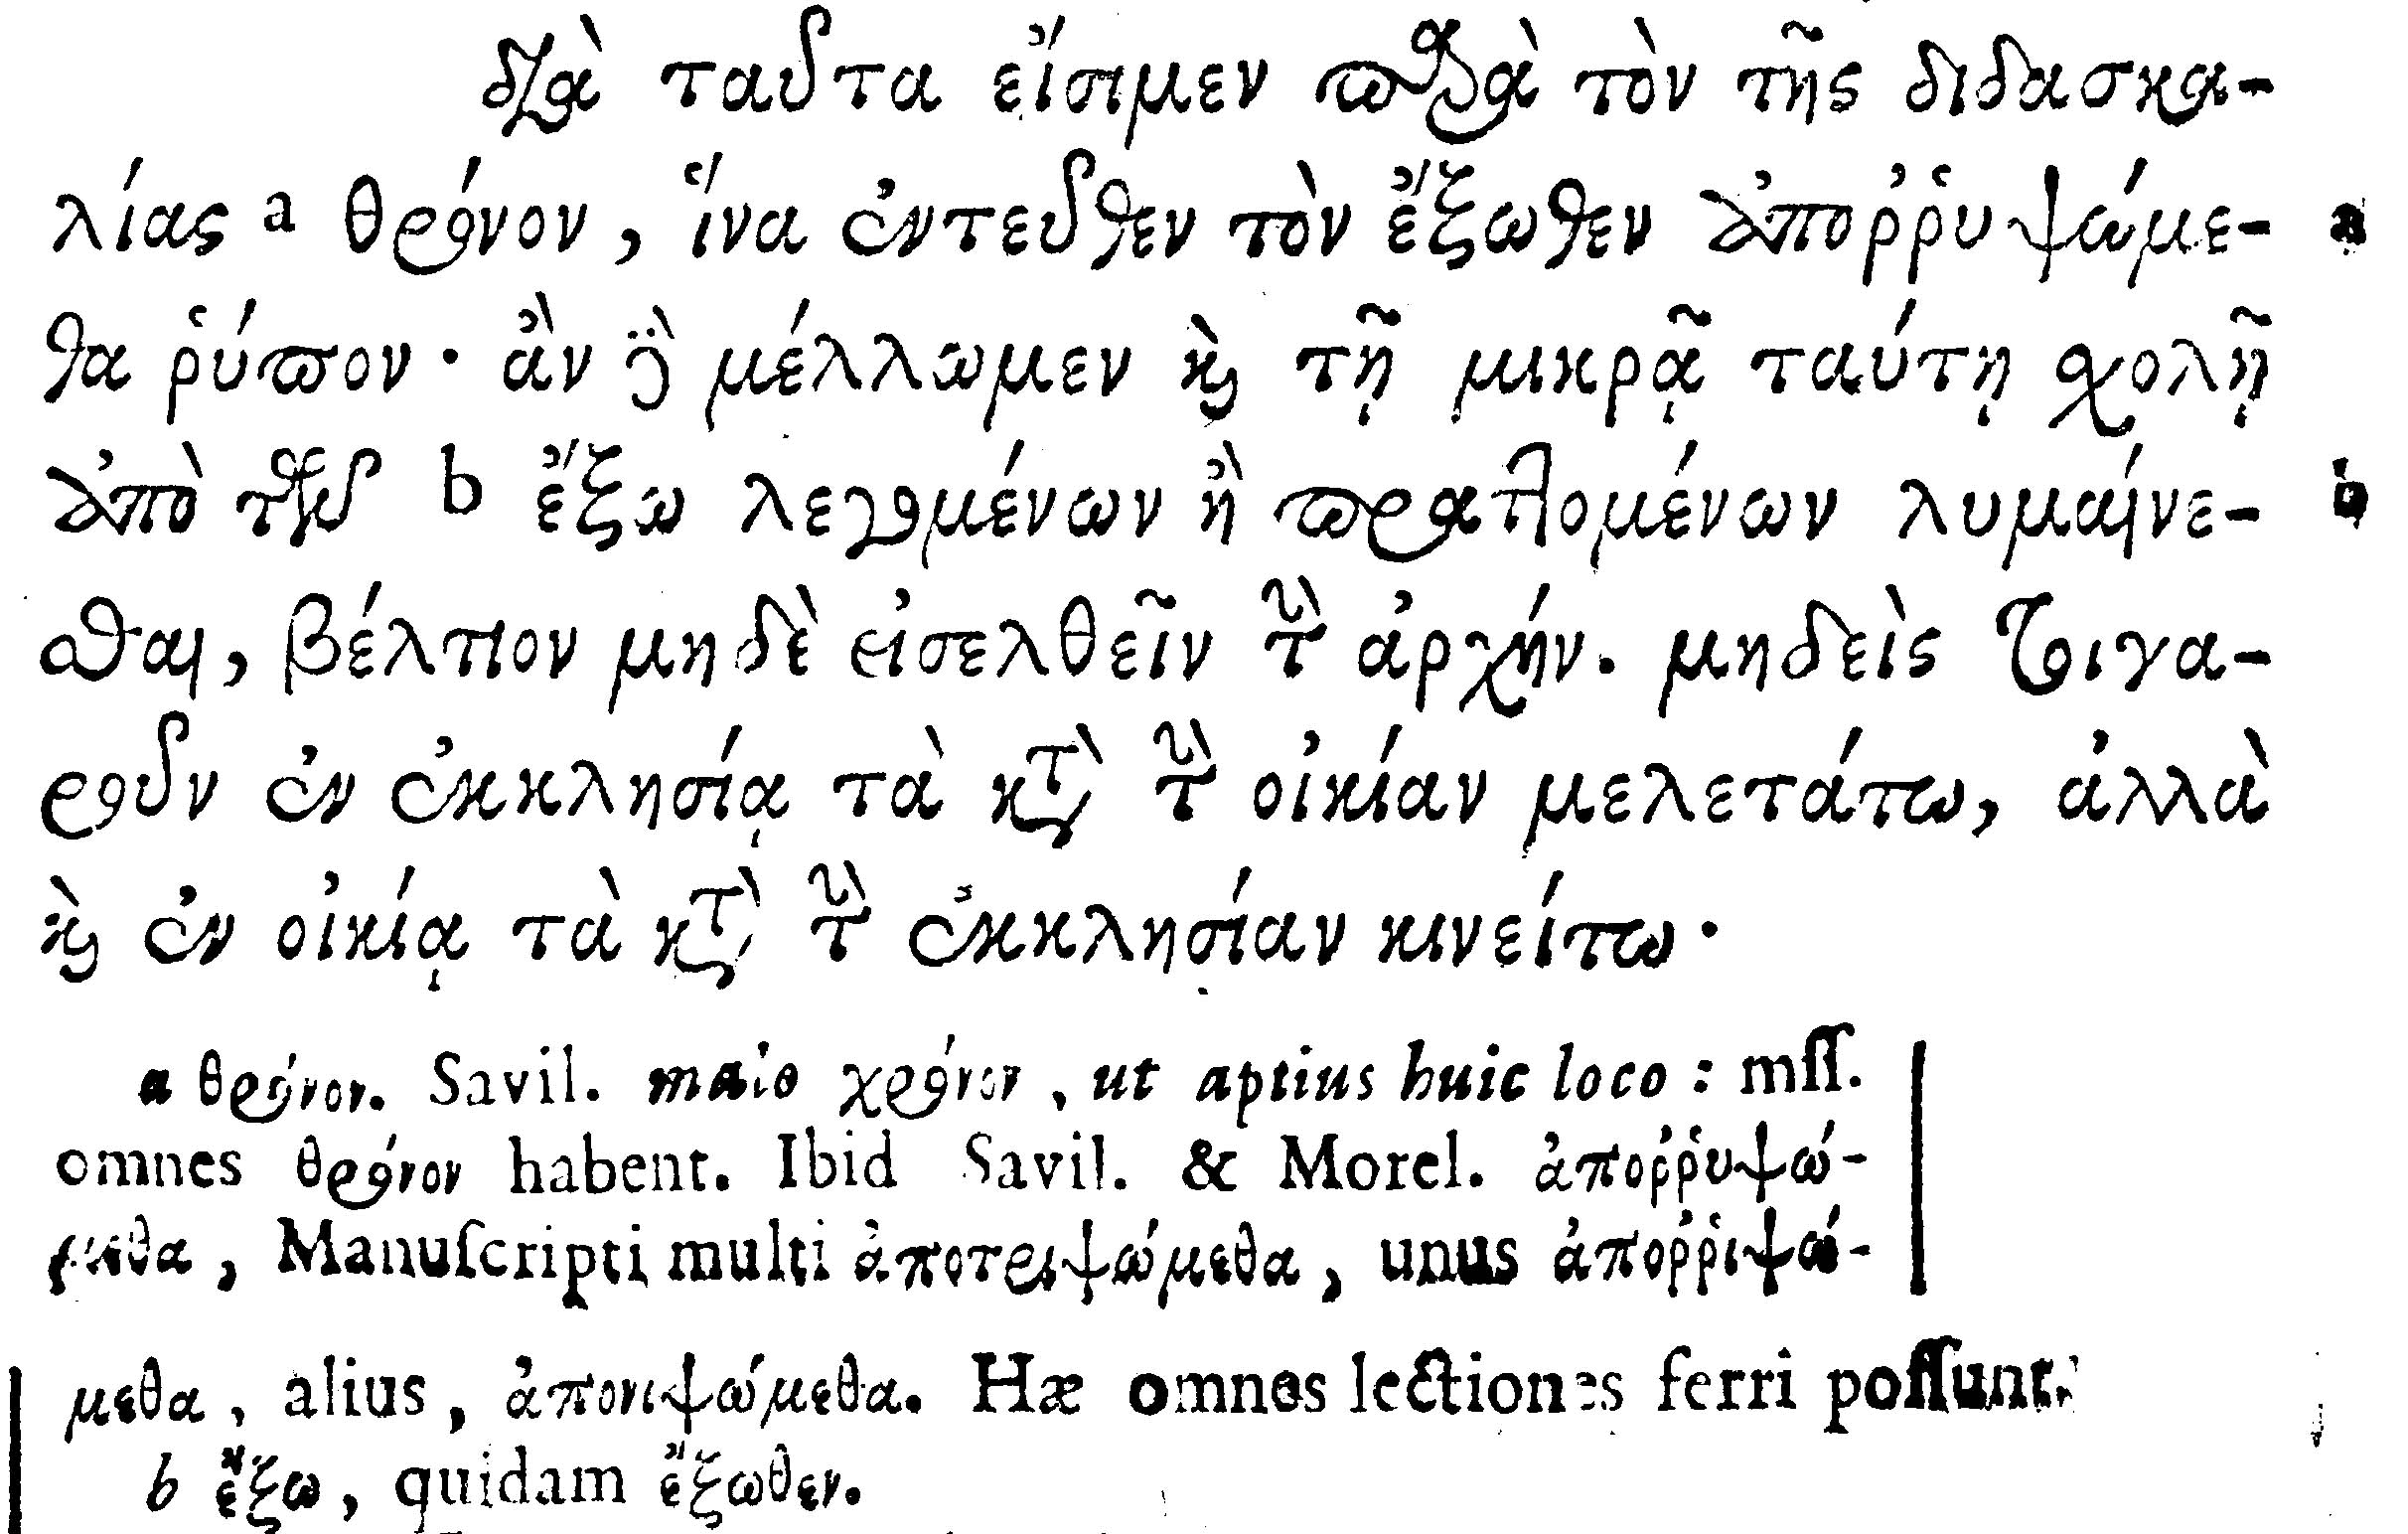 διὰ ταῦτα εἴσιμεν παρὰ τὸν τῆς διδασκα-
λίας a θρόνον, ἵνα ἐντεῦθεν τὸν ἔξωθεν ἀποῤῥυψώμε-
θα ῥύπον· ἂν ϳὰ μέλλωμεν καὶ τῇ μικρᾷ ταύτῃ σχολῇ
ἀπὸ τῶν b ἔξω λεγομένων ἢ πραττομένων λυμαίνε-
σθαι, βέλτιον μηδὲ εἰσελθεῖν τὴν ἀρχήν. μηδεὶς τοιγα-
ροῦν ἐν ἐκκλησίᾳ τὰ κατὰ τὴν οἰκίαν μελετάτω, ἀλλὰ
καὶ ἐν οἰκίᾳ τὰ κατὰ τὴν ἐκκλησίαν κινείτω·
a θρόνον. Savil. malo χρόνον, ut aptius huic loco : mſſ.
omnes θρόνον habent. Ibid Savil. & Morel. ἀποῤῥυψώ-
μεθα, Manuſcripti multi ἀποτριψώμεθα, unus ἀποῤῥιψώ-
μεθα, alius, ἀπονιψώμεθα. Hæ omnes lectiones ferri poſſunt.
b ἔξω, quidam ἔξωθεν.